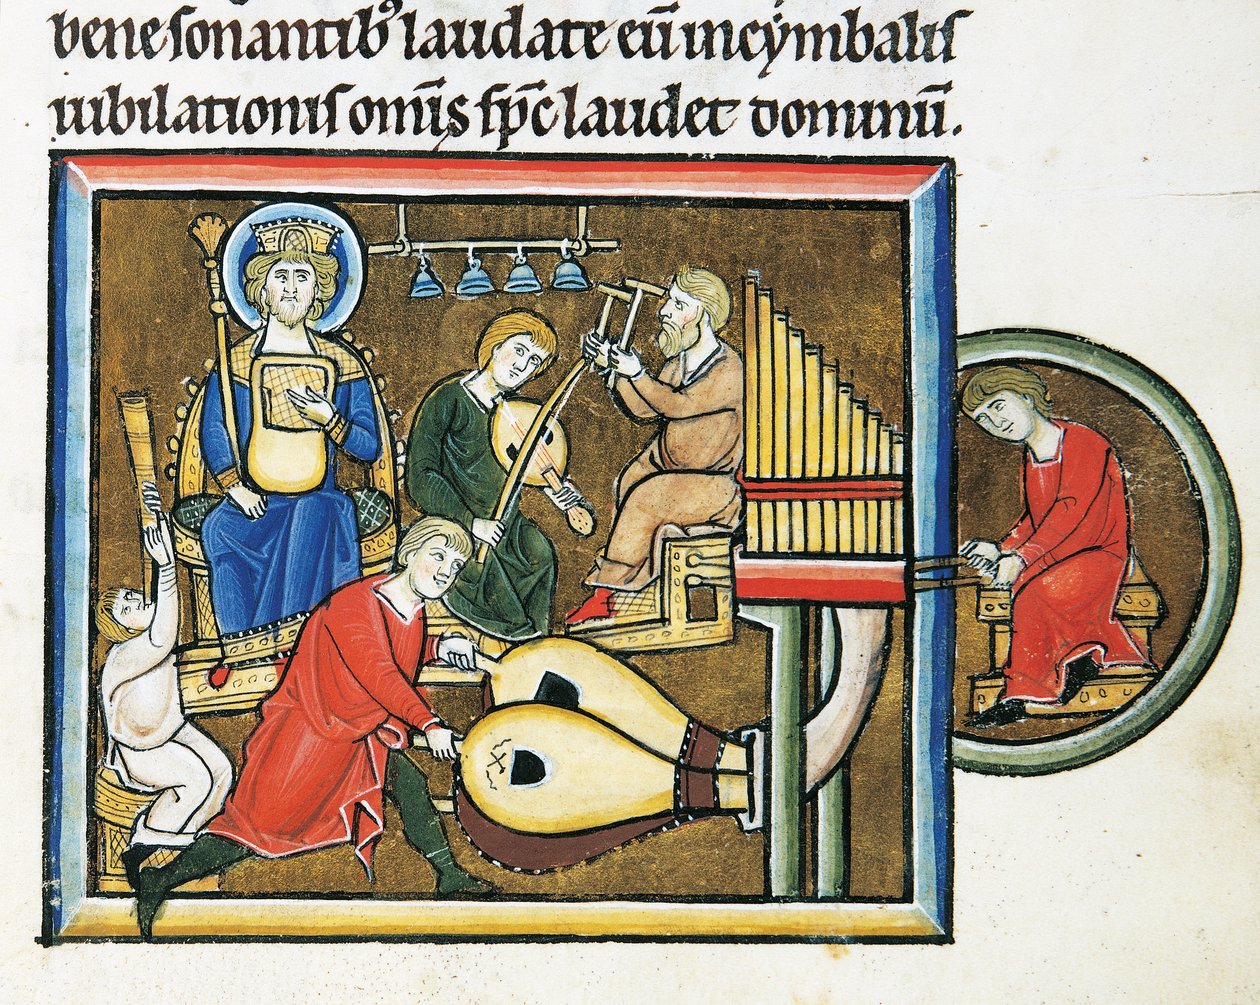 benesonantib⁹ laudate eū incẏmbalis
iubilationis om̄is sp̄c laudet dominū.